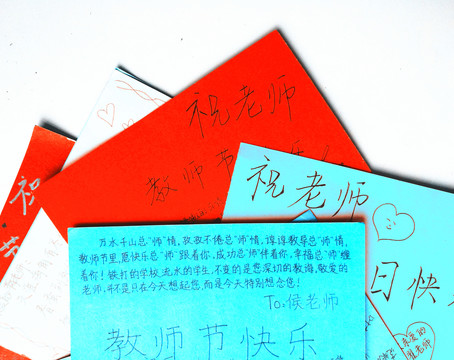 祝老师
教师节快
祝老师
日快
亲爱的
老师
祝
节
万水千山总"师"情，孜孜不倦总"师"情，谆谆教导总"师"情，
教师节里，愿快乐总"师"跟着你，成功总"师"伴着你，幸福总"师"缠
着你！铁打的学校，流水的学生，不变的是您深切的教诲，敬爱的
老师，并不是只在今天想起您，而是今天特别想念您！
To:侯老师
教师节快乐